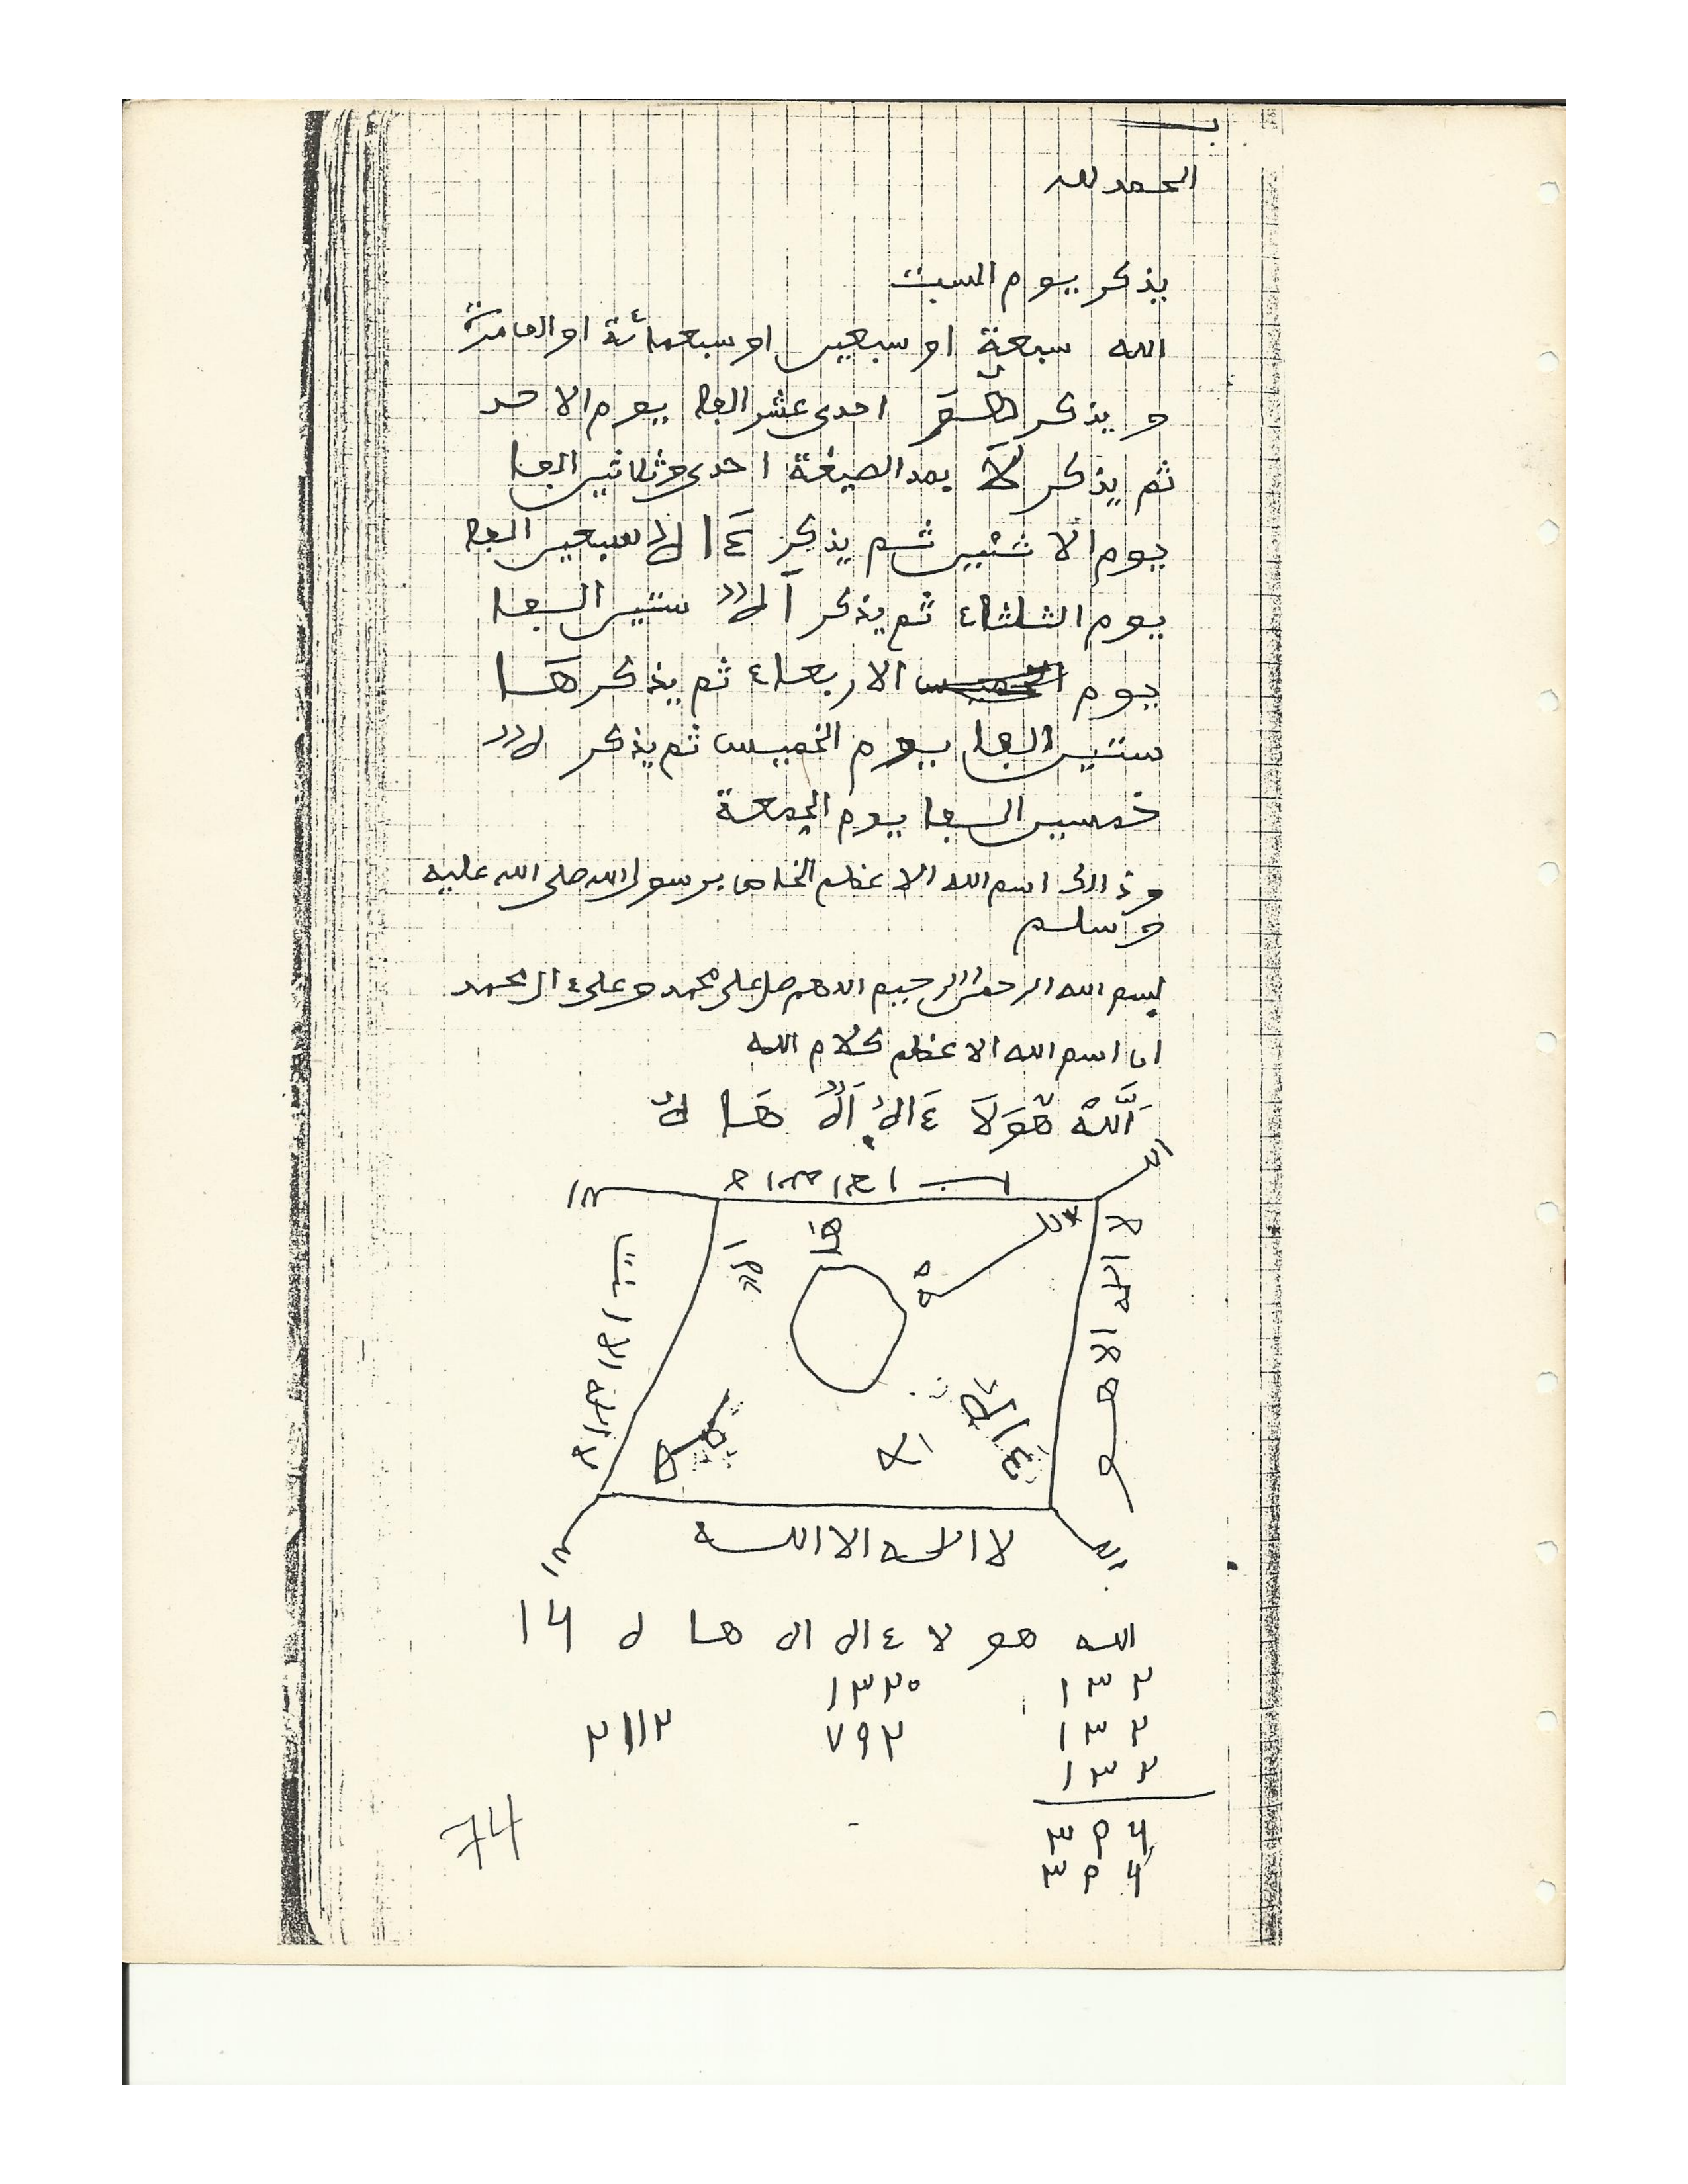 الحمد لله
يذكر يوم السبت
الله سبعة او سبعين او سبعمائة او الف مرة
و يذكر احدى عشر الفا يوم الاحد
ثم يذكر لَا بهد الصيغة احدى وثلاثين الفا
يوم الاثنين ثم يذكر ءَا لا سبعين الفا
يوم الثلثاء ثم يذكر ستين الفا
يوم الاربعاء ثم يذكر هَا
ستين الفا يوم الخميس ثم يذكر
خمسين الفا يوم الجمعة
وذالك اسم الله الاعظم الخاص برسول الله صلى الله عليه
وسلم
بسم الله الرحمن الرحيم اللهم صل على محمد وعلى ءال محمد
ان اسم الله الاعظم كلام الله
اَللَّهُ هُوَ لَا ءَالُ اَلٌ هَا لٌ
الله
لا اله الا هو
هَا
لا اله الا انت
ءال
لا اله الا الله
الله هو لا ء ال ال هـا ل ١٤
١٣٢ ١٣٢٠
١٣٢ ٧٩٢ ٢١١٢
١٣٢
٣٩٤
٣٩٤
74